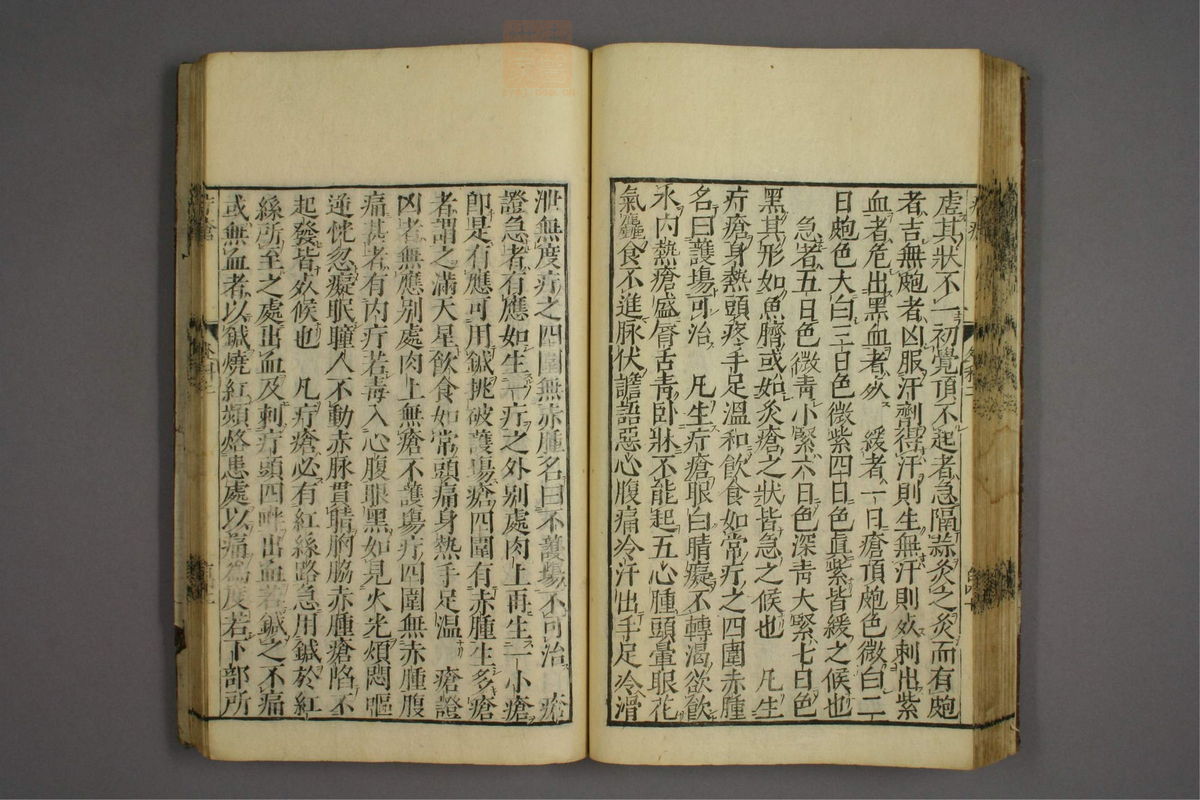 虐其狀不一初覺頂不起者急隔蒜灸之灸而有皰
者吉無皰者凶服汗劑得汗則生無汗則死刺出紫
血者危出黑血者死　緩者一日瘡頂皰色微白二
日皰色大白三日色微紫四日色眞紫皆緩之候也
急者五日色微青小緊六日色深青大緊七日色
黑其形如魚臍或如灸瘡之狀皆急之候也　凡生
疔瘡身熱頭疼手足溫和飲食如常疔之四圍赤腫
名曰護場可治　凡生疔瘡眼白睛癡不轉渴欲飲
氷內熱瘡盛脣舌青卧牀不能起五心腫頭暈眼花
氣麤食不進脉伏譫語惡心腹痛冷汗出手足冷滑
泄無度疔之四圍無赤腫名曰不護場不可治　瘡
證急者有應如生一疔之外别處肉上再生一小瘡
卽是有應可用鍼挑破護塲瘡四圍有赤腫生多瘡
者謂之滿天星飲食如常頭痛身熱手足溫　瘡證
凶者無應别處肉上無瘡不護塲疔四圍無赤腫腹
痛甚者有肉疔若毒入心腹眼黑如見火光煩悶嘔
逆恍忽癡眠瞳人不動赤脉貫睛胸脇赤腫瘡陷不
起發皆死候也　凡疔瘡必有紅絲路急用鍼於紅
絲所至之處出血及刺疔頭四畔出血若鍼之不痛
或無血者以鍼燒紅頻烙患處以痛爲度若下部所